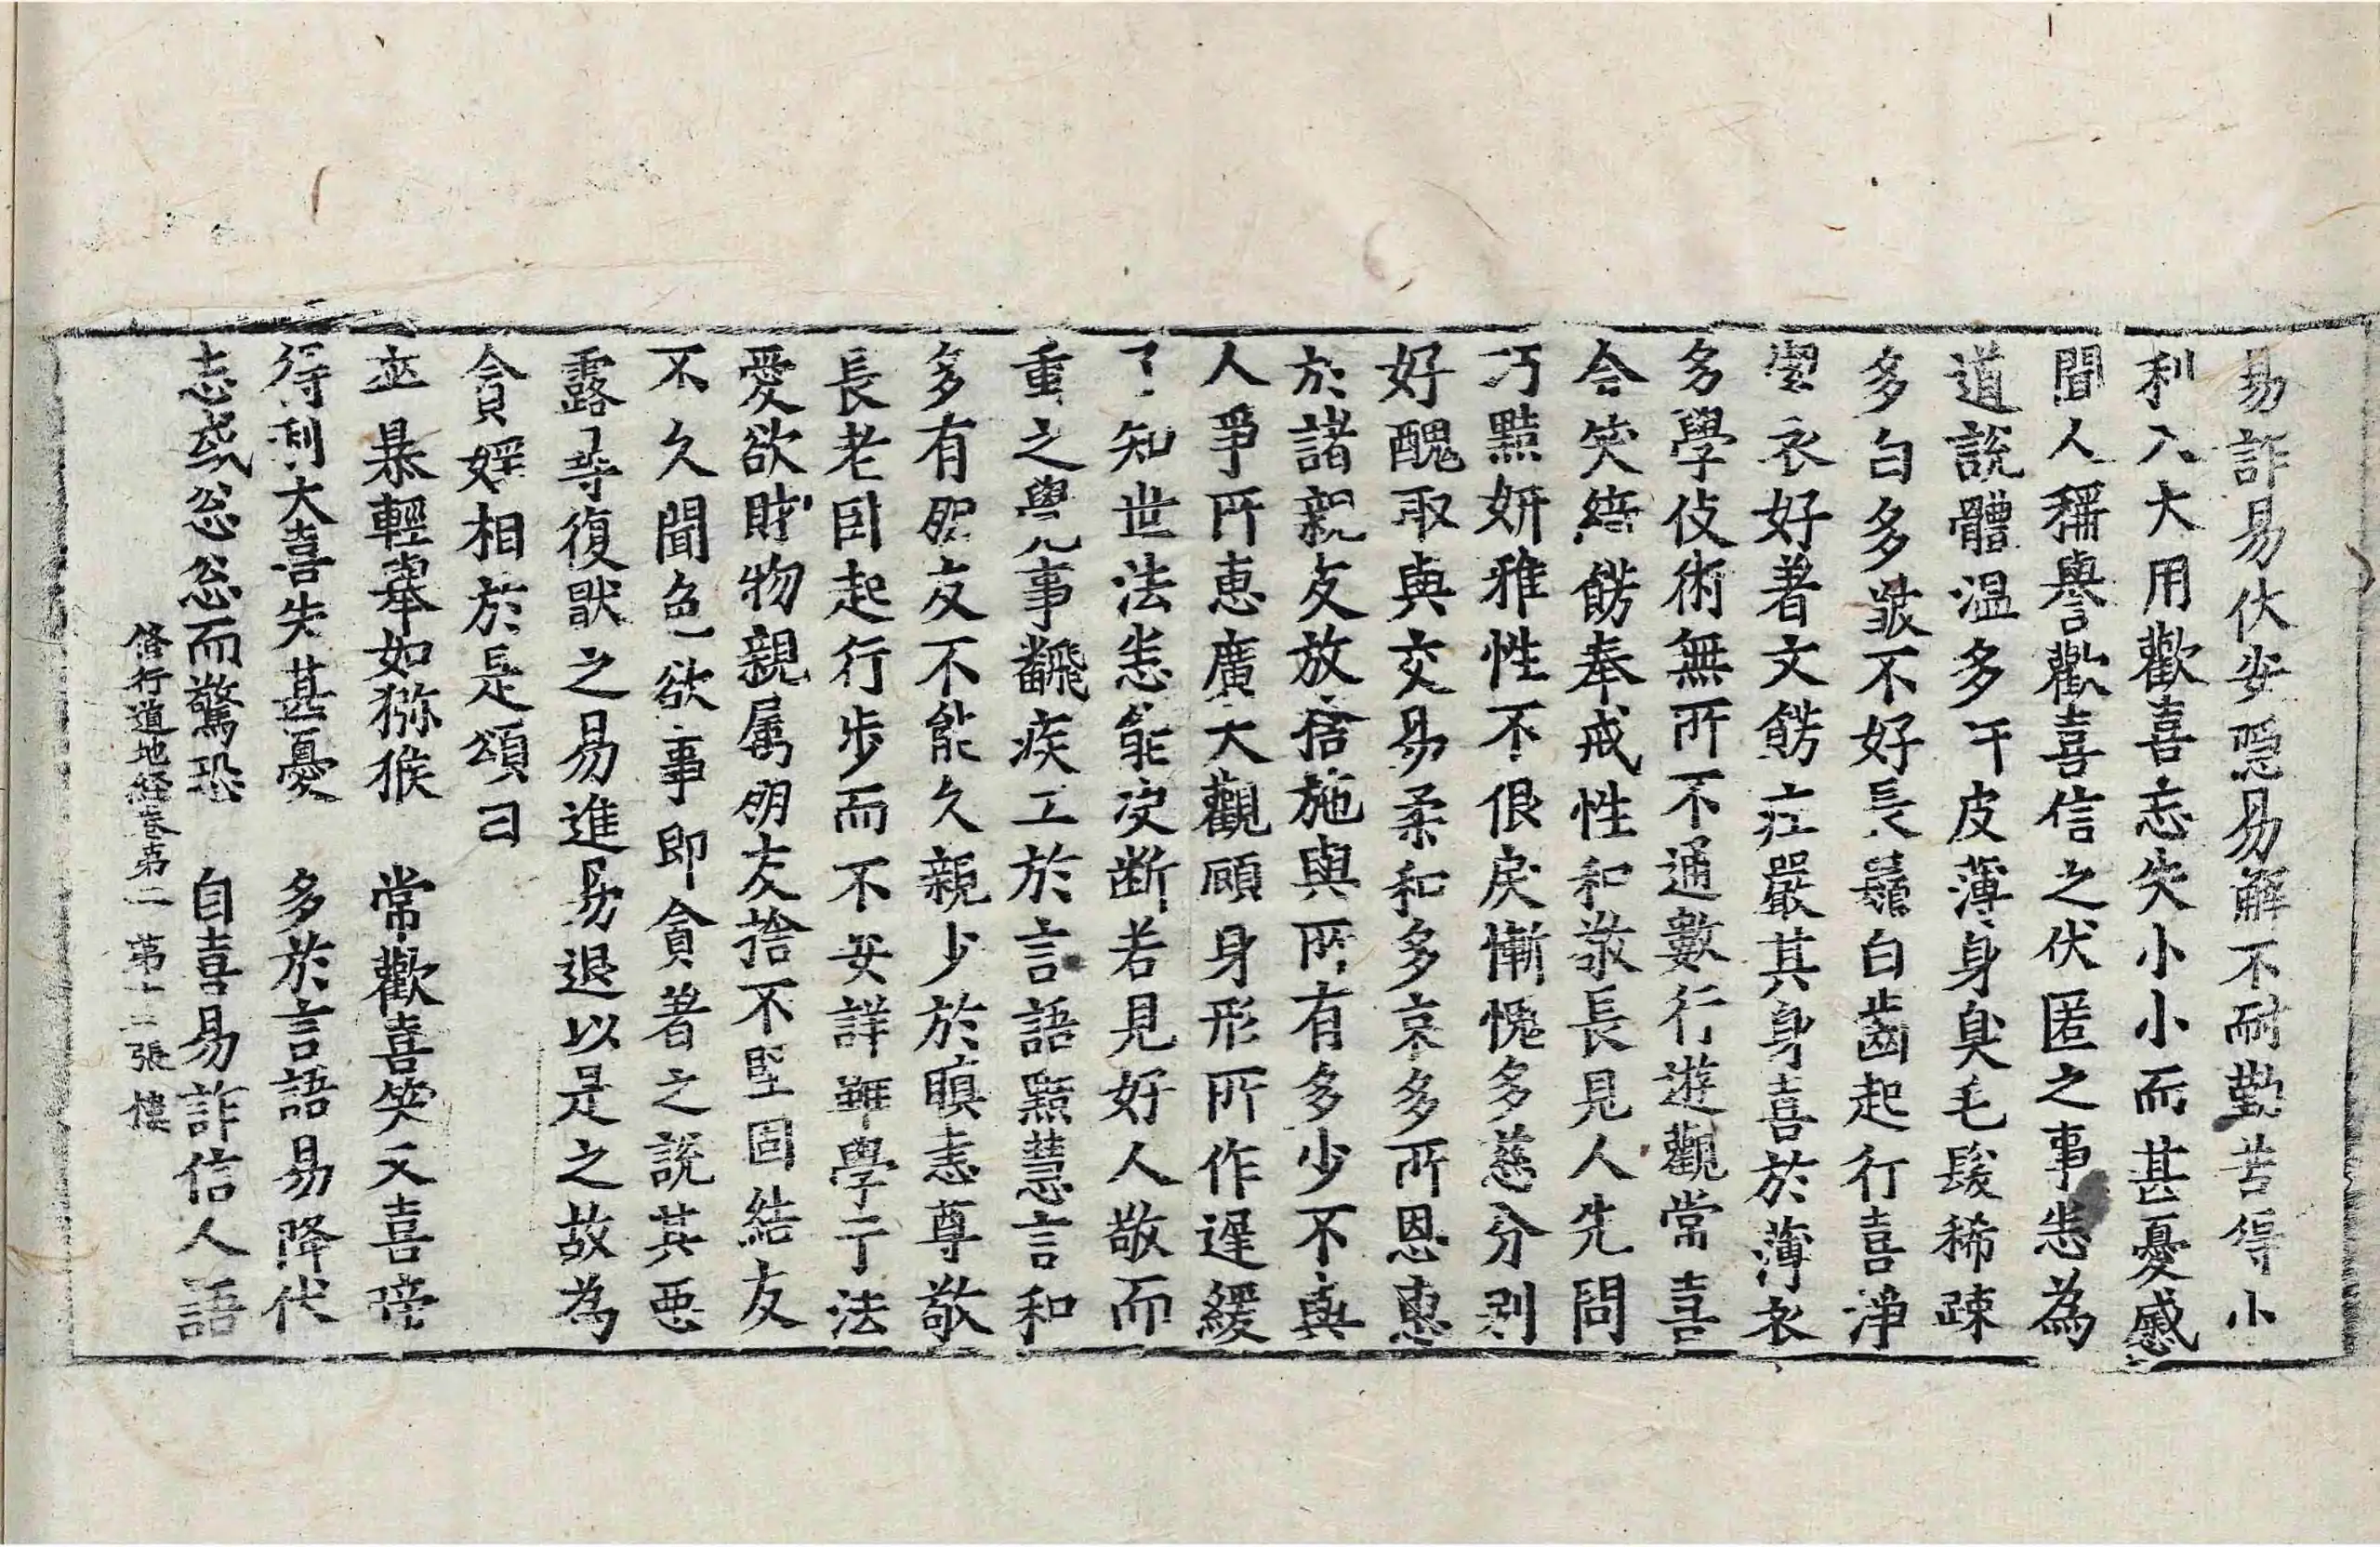 易詐易伏安隱易解不耐勤苦得小
利入大用歡喜忘失小小而甚憂慼
聞人稱譽歡喜信之伏匿之事恚為
道說體溫多汗皮薄身臭毛髮稀疎
多白多皺不好長鬚白齒起行喜淨
潔衣好著文飾庄嚴其身喜於薄衣
多學伎術無所不通數行遊觀常喜
含笑綺飾奉戒性和敬長見人先問
巧黠妍雅性不佷戾慚愧多慈分別
好醜取與交易柔和多哀多所恩惠
於諸親友放捨施與所有多少不與
人爭所惠廣大觀顧身形所作遲緩
了知世法悉能决断若見好人敬而
重之舉凡事飜疾工於言語黠慧言和
多有朋友不能久親少於瞋恚尊敬
長老臥起行步而不安詳雖學于法
愛欲財物親屬朋友捨不堅固結友
不久聞色欲事即貪著之說其惡
露尋復厭之易進易退以是之故為
貪婬相於是頌曰
卒暴輕舉如猕猴　常歡喜笑又喜啼
得利大喜失甚憂　多於言語易降伏
志或忩忩而驚恐　自喜易詐信人語
脩行道地經卷第二　第十二張　樓